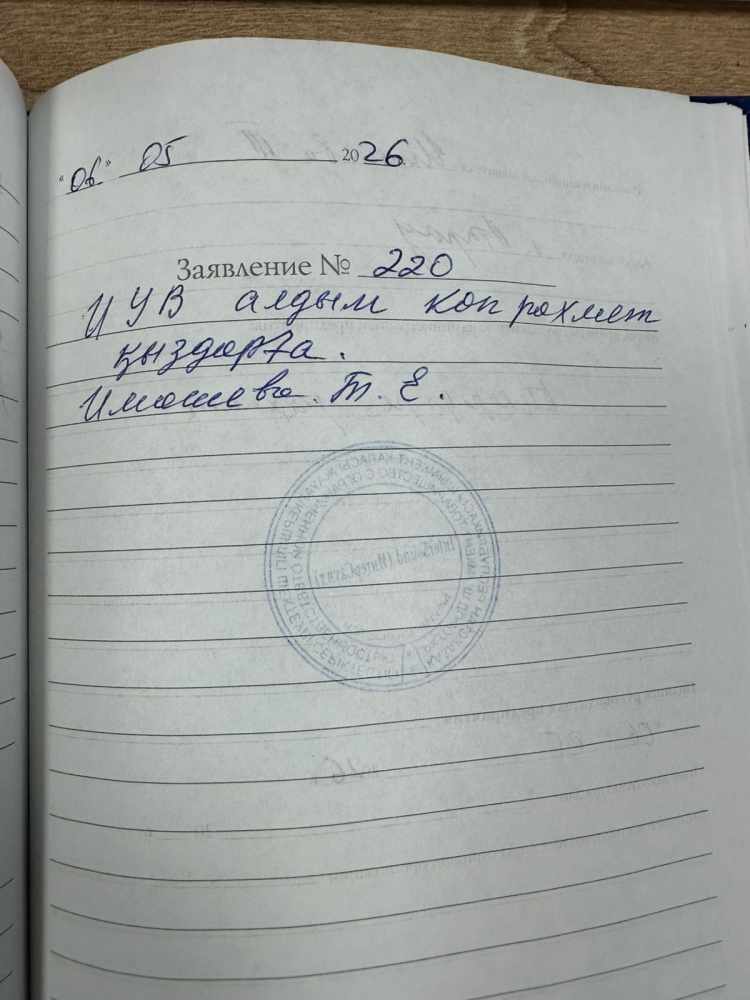 "06" 05 2026
Заявление № 220
ЦУВ алдым коп рахмет
қыздарға.
Имашева. Т. Е.